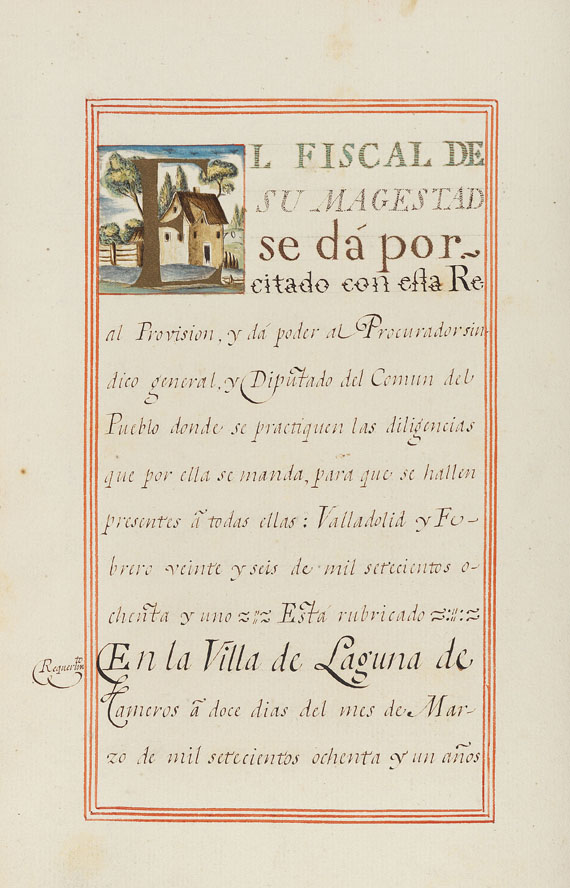 EL FISCAL DE
SU MAGESTAD
se dá por
citado con esta Re
al Provision, y dá poder al Procurador sin
dico general, y Diputado del Comun del
Pueblo donde se practiquen las diligencias
que por ella se manda, para que se hallen
presentes â todas ellas: Valladolid y Fe-
brero veinte y seis de mil setecientos o-
chenta y uno Está rubricado
Requerim.to
En la Villa de Laguna de
Cameros â doce dias del mes de Mar-
zo de mil setecientos ochenta y un años